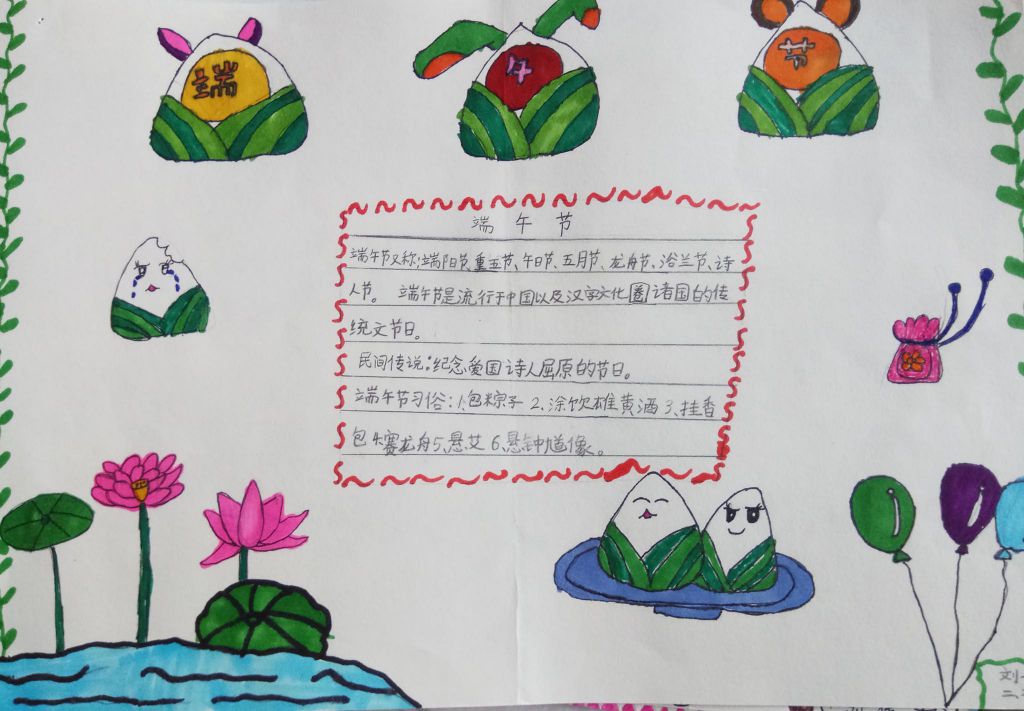 端
午
节
端 午 节
端午节又称:端阳节、重五节、午日节、五月节、龙舟节、浴兰节、诗
人节。 端午节是流行于中国以及汉字文化圈诸国的传
统文节日。
民间传说:纪念爱国诗人屈原的节日。
端午节习俗:1、包粽子 2、涂饮雄黄酒 3、挂香
包 4、赛龙舟 5、悬艾 6、悬钟馗像。
刘
二